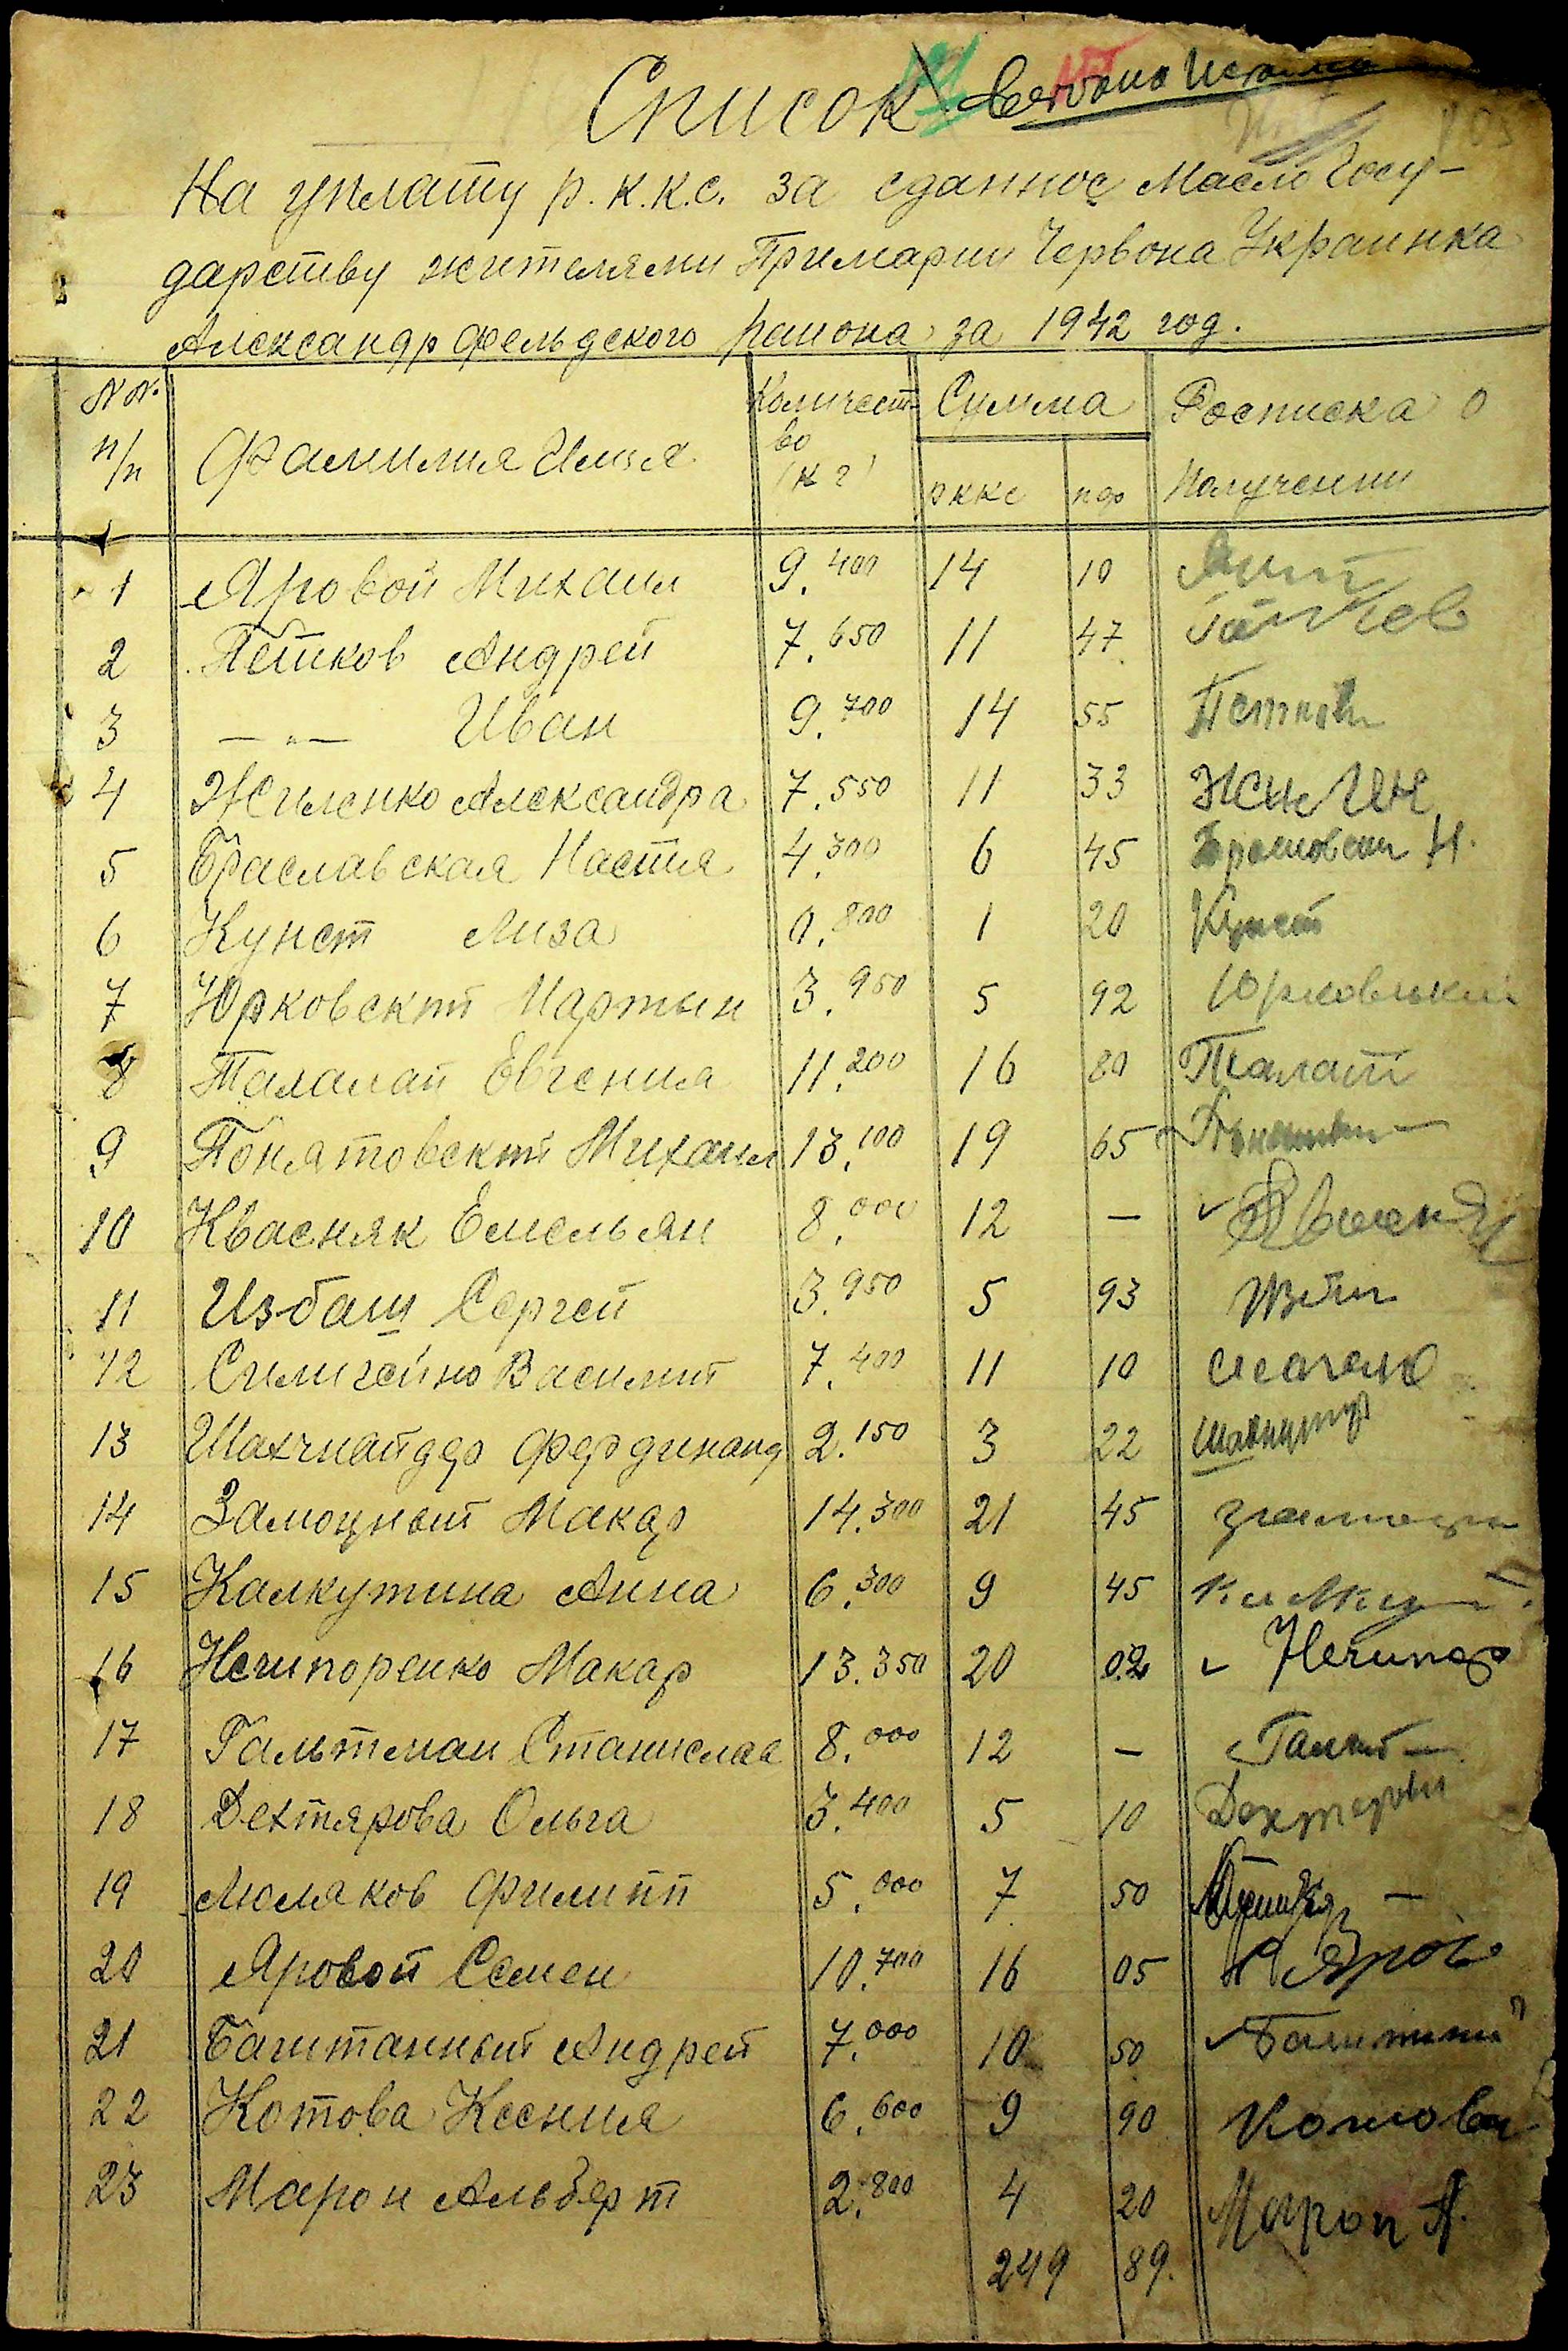 Список
На уплату р.к.к.с. за сданное Масло Госу-
дарству жителями Примарии Червона Украинка
Александрфельдского района за 1942 год.
NN. п/п Фамилия Имя Количест- во (кг) Сумма рккс пф Росписка о Получении
1 Яровой Михаил 9.400 14 10
2 Петков Андрей 7.650 11 47
3 —„— Иван 9.700 14 55 Петков
4 Жиленко Александра 7.550 11 33
5 Браславская Настя 4.300 6 45 Н.
6 Кунст Лиза 0.800 1 20 Кунст
7 Юрковский Мартын 3.950 5 92 Юрковський
8 Талалай Евгения 11.200 16 80 Талалай
9 Понятовский Михаил 13.100 19 65
10 Квасняк Емельян 8.000 12 —
11 Избаш Сергей 3.950 5 93
12 Силигейно Василий 7.400 11 10
13 Шахчнайдер Фердинанд 2.150 3 22
14 Замоцный Макар 14.300 21 45
15 Калкутина Анна 6.300 9 45
16 Нечипоренко Макар 13.350 20 02 Нечипор
17 Гальтман Станислав 8.000 12 — Гальт—
18 Дехтярова Ольга 3.400 5 10
19 Люляков Филипп 5.000 7 50
20 Яровой Семен 10.700 16 05
21 Баштанный Андрей 7.000 10 50
22 Котова Ксения 6.600 9 90 Котова
23 Марон Альберт 2.800 4 20 Марон А.
249 89.